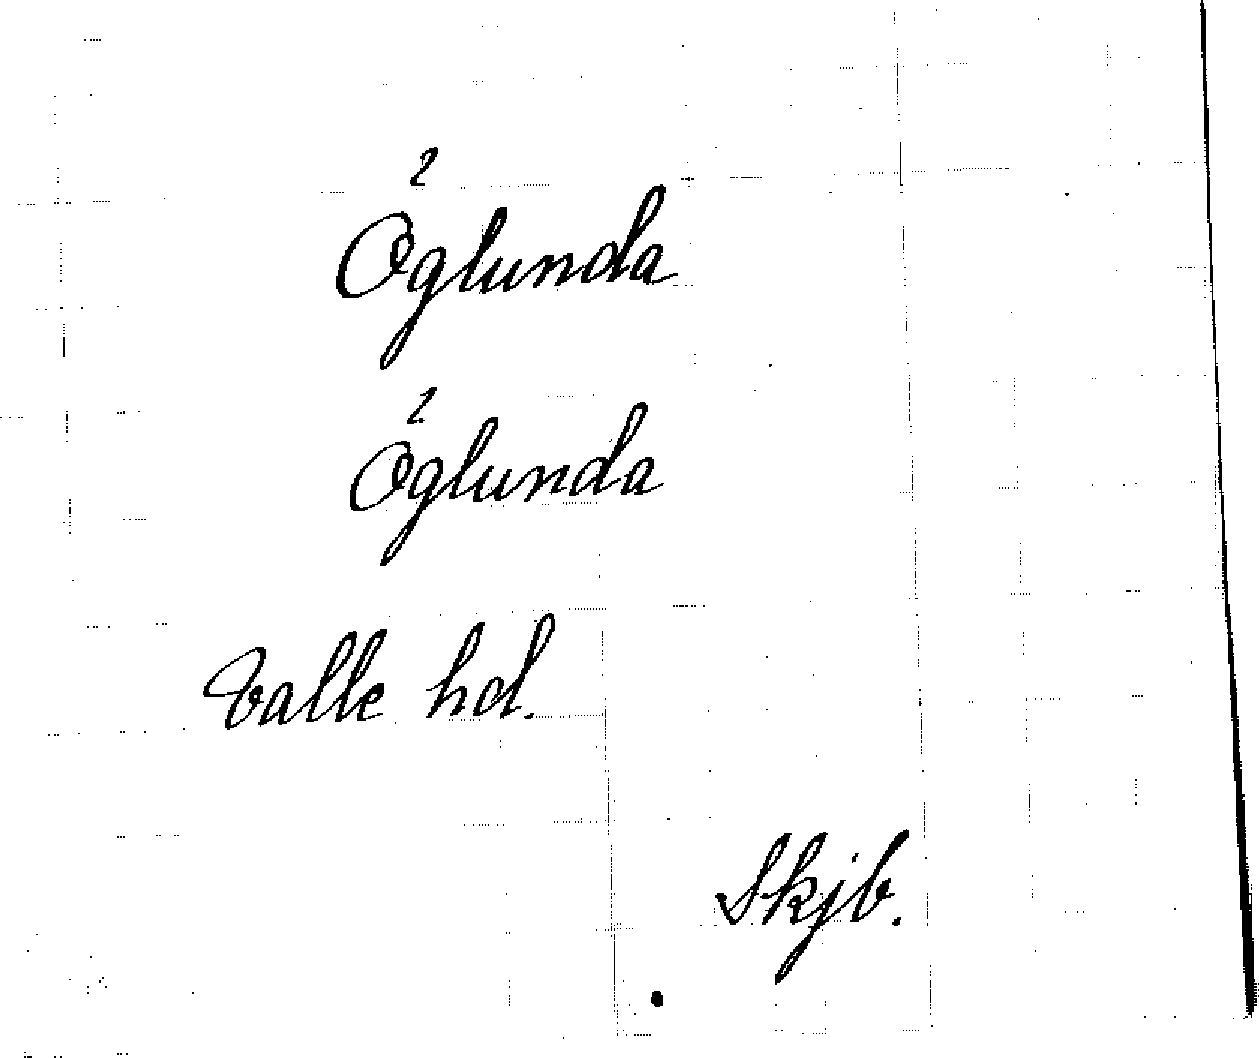 Öglunda
Öglunda
Valle hd.
Skjb.